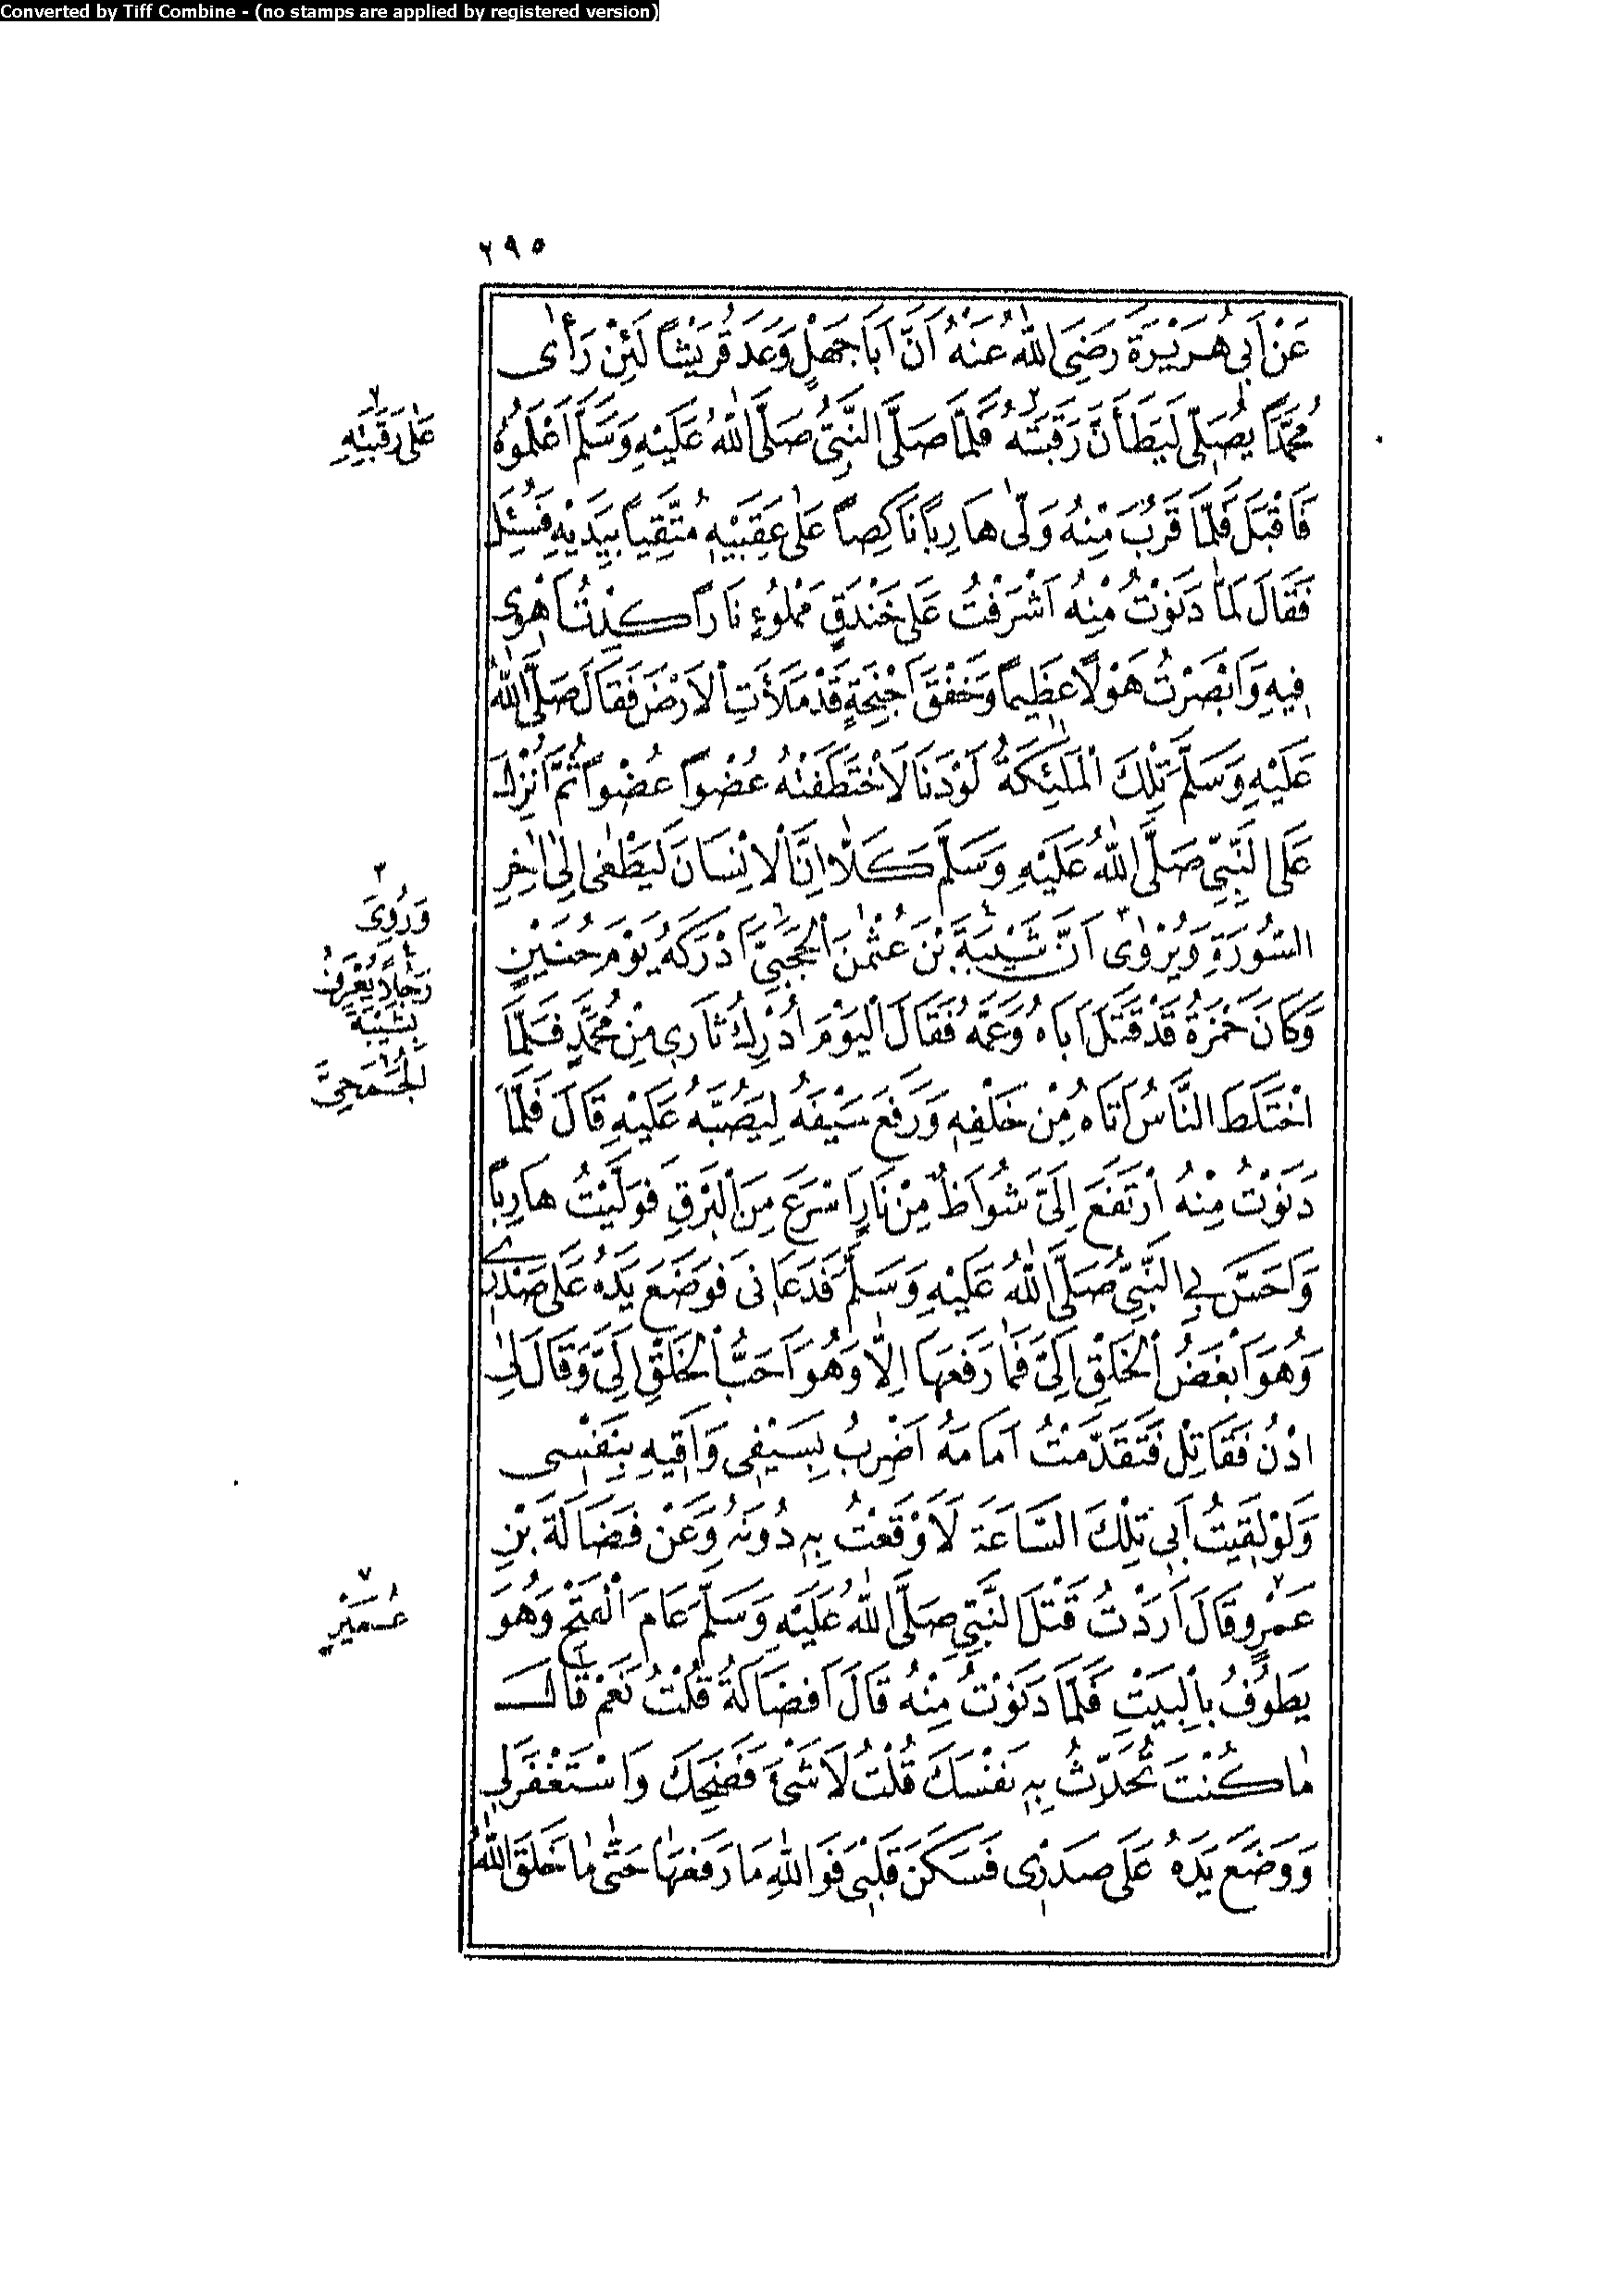 Converted by Tiff Combine - (no stamps are applied by registered version)
٢٩٥
عَنْ اَبِى هُرَيْرَةَ رَضِىَ اللّٰهُ عَنْهُ اَنَّ اَبَا جَهْلٍ وَعَدَ قُرَيْشاً لَئِنْ رَأٰى
مُحَمَّدًا يُصَلِّى لَيَطَأَنَّ رَقَبَتَهُ فَلَمَّا صَلَّى النَّبِىُّ صَلَّى اللّٰهُ عَلَيْهِ وَسَلَّمَ اَعْلَمُوهُ
فَاَقْبَلَ فَلَمَّا قَرُبَ مِنْهُ وَلّٰى هَارِبًا نَاكِصاً عَلٰى عَقِبَيْهِ مُتَّقِياً بِيَدَيْهِ فَسُئِلَ
فَقَالَ لَمَّا دَنَوْتُ مِنْهُ اَشْرَفْتُ عَلٰى خَنْدَقٍ مَمْلُوءٍ نَاراً كِدْتُ اَهْوِى
فِيهِ وَاَبْصَرْتُ هَوْلًا عَظِيماً وَخَفْقَ اَجْنِحَةٍ قَدْ مَلَأَتِ الْاَرْضَ فَقَالَ صَلَّى اللّٰهُ
عَلَيْهِ وَسَلَّمَ تِلْكَ الْمَلٰئِكَةُ لَوْ دَنَا لَاخْتَطَفَتْهُ عُضْواً عُضْواً ثُمَّ اُنْزِلَ
عَلَى النَّبِىِّ صَلَّى اللّٰهُ عَلَيْهِ وَسَلَّمَ كَلَّا اِنَّ الْاِنْسَانَ لَيَطْغٰى اِلٰى اٰخِرِ
السُّورَةِ وَيُرْوٰى اَنَّ شَيْبَةَ بْنَ عُثْمٰنَ الْحَجَبِىَّ اَدْرَكَهُ يَوْمَ حُنَيْنٍ
وَكَانَ حَمْزَةُ قَدْ قَتَلَ اَبَاهُ وَعَمَّهُ فَقَالَ الْيَوْمَ اُدْرِكُ ثَارِى مِنْ مُحَمَّدٍ فَلَمَّا
اخْتَلَطَ النَّاسُ اَتَاهُ مِنْ خَلْفِهِ وَرَفَعَ سَيْفَهُ لِيَصُبَّهُ عَلَيْهِ قَالَ فَلَمَّا
دَنَوْتُ مِنْهُ ارْتَفَعَ اِلَىَّ شُوَاظٌ مِنْ نَارٍ اَسْرَعُ مِنَ الْبَرْقِ فَوَلَّيْتُ هَارِبًا
وَاَحَسَّ بِى النَّبِىُّ صَلَّى اللّٰهُ عَلَيْهِ وَسَلَّمَ فَدَعَانِى فَوَضَعَ يَدَهُ عَلٰى صَدْرِى
وَهُوَ اَبْغَضُ الْخَلْقِ اِلَىَّ فَمَا رَفَعَهَا اِلَّا وَهُوَ اَحَبُّ الْخَلْقِ اِلَىَّ وَقَالَ لِى
ادْنُ فَقَاتِلْ فَتَقَدَّمْتُ اَمَامَهُ اَضْرِبُ بِسَيْفِى وَاَقِيهِ بِنَفْسِى
وَلَوْ لَقِيتُ اَبِى تِلْكَ السَّاعَةَ لَاَوْقَعْتُ بِهِ دُونَهُ وَعَنْ فَضَالَةَ بْنِ
عَمْرٍو قَالَ اَرَدْتُ قَتْلَ النَّبِىِّ صَلَّى اللّٰهُ عَلَيْهِ وَسَلَّمَ عَامَ الْفَتْحِ وَهُوَ
يَطُوفُ بِالْبَيْتِ فَلَمَّا دَنَوْتُ مِنْهُ قَالَ اَفَضَالَةُ قُلْتُ نَعَمْ قَالَ
مَا كُنْتَ تُحَدِّثُ بِهِ نَفْسَكَ قُلْتُ لَا شَىْءَ فَضَحِكَ وَاسْتَغْفَرَ لِى
وَوَضَعَ يَدَهُ عَلٰى صَدْرِى فَسَكَنَ قَلْبِى فَوَاللّٰهِ مَا رَفَعَهَا حَتّٰى مَا خَلَقَ اللّٰهُ
٧
عَلٰى رَقَبَتِهِ
٣
وَرُوِىَ
٤
رَجُلًا يُعْرَفُ
بِشَيْبَةَ
٦
الْجُمَحِىَّ
٧
عُمَيْرٍ